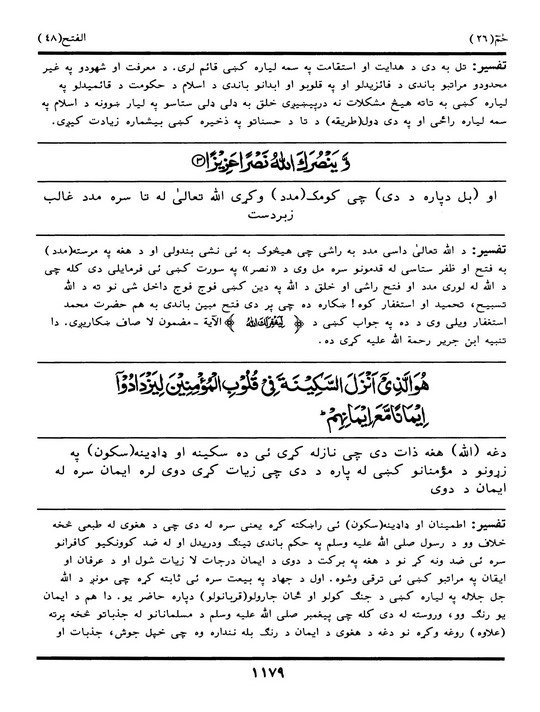 حٰمٓ(٢٦)
الفتح(٤٨)
تفسیر: تل به دی د هدایت او استقامت په سمه لیاره کښی قائم لری. د معرفت او شهودو په غیر
محدودو مراتبو باندی د فائزیدلو او په قلوبو او ابدانو باندی د اسلام د حکومت د قائمیدلو په
لیاره کښی به تاته هیڅ مشکلات نه درپیښیږی خلق به ډلی ډلی ستاسو په لیار ښوونه د اسلام په
سمه لیاره راځی او په دی ډول(طریقه) د تا د حسناتو په ذخیره کښی بیشماره زیادت کیږی.
وَّيَنْصُرَكَ اللّٰهُ نَصْرًا عَزِيْزًا ﴿٣﴾
او (بل دپاره د دی) چی کومک(مدد) وکړی الله تعالیٰ له تا سره مدد غالب
زبردست
تفسیر: د الله تعالیٰ داسی مدد به راشی چی هیڅوک به ئی نشی بندولی او د هغه په مرسته(مدد)
به فتح او ظفر ستاسی له قدمونو سره مل وی د «نصر» په سورت کښی ئی فرمایلی دی کله چی
د الله له لوری مدد او فتح راشی او خلق د الله په دین کښی فوج فوج داخل شی نو ته د الله
تسبیح، تحمید او استغفار کوه! ښکاره ده چی پر دی فتح مبین باندی به هم حضرت محمد
استغفار ویلی وی د ده په جواب کښی د ﴿ لِيَغْفِرَ لَكَ اللّٰهُ ﴾ الآیة ـ مضمون لا صاف ښکاریږی. دا
تنبیه ابن جریر رحمة الله علیه کړی ده.
هُوَ الَّذِيْٓ اَنْزَلَ السَّكِيْنَةَ فِيْ قُلُوْبِ الْمُؤْمِنِيْنَ لِيَزْدَادُوْٓا
اِيْمَانًا مَّعَ اِيْمَانِهِمْ ؕ
دغه (الله) هغه ذات دی چی نازله کړی ئی ده سکینه او ډاډینه(سکون) په
زړونو د مؤمنانو کښی له پاره د دی چی زیات کړی دوی لره ایمان سره له
ایمان د دوی
تفسیر: اطمینان او ډاډینه(سکون) ئی راښکته کړه یعنی سره له دی چی د هغوی له طبعی څخه
خلاف وو د رسول صلی الله علیه وسلم په حکم باندی ټینګ ودریدل او له ضد کوونکیو کافرانو
سره ئی ضد ونه کړ نو د هغه په برکت د دوی د ایمان درجات لا زیات شول او د عرفان او
ایقان په مراتبو کښی ئی ترقی وشوه. اول د جهاد په بیعت سره ئی ثابته کړه چی مونږ د الله
جل جلاله په لیاره کښی د جنګ کولو او ځان جارولو(قربانولو) دپاره حاضر یو. دا هم د ایمان
یو رنګ وو، وروسته له دی کله چی پیغمبر صلی الله علیه وسلم د مسلمانانو له جذباتو څخه پرته
(علاوه) روغه وکړه نو دغه د هغوی د ایمان د رنګ بله ننداره وه چی خپل جوش، جذبات او
١١٧٩